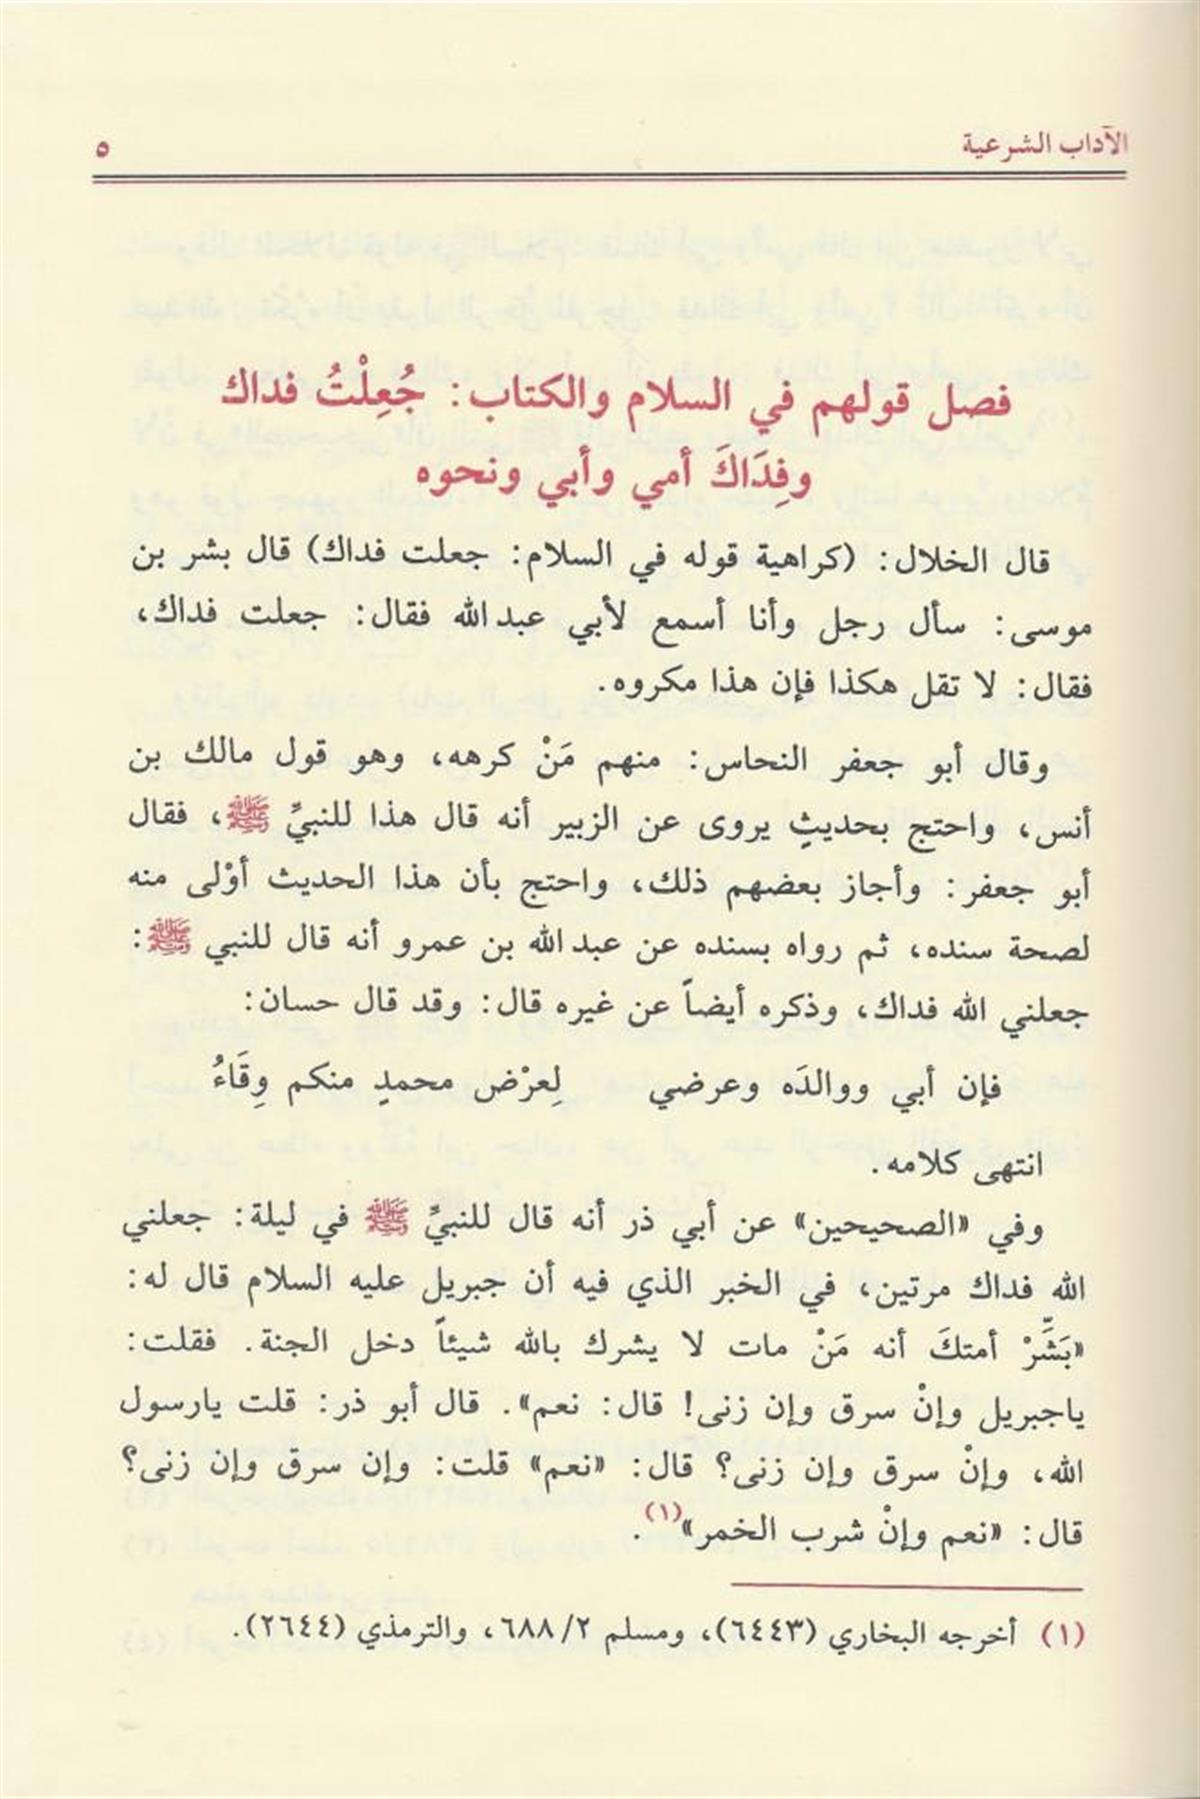 الآداب الشرعية ٥
فصل قولهم في السلام والكتاب: جُعِلْتُ فداك
وفِدَاكَ أمي وأبي ونحوه
قال الخلال: (كراهية قوله في السلام: جعلت فداك) قال بشر بن
موسى: سأل رجل وأنا أسمع لأبي عبدالله فقال: جعلت فداك،
فقال: لا تقل هكذا فإن هذا مكروه.
وقال أبو جعفر النحاس: منهم مَنْ كرهه، وهو قول مالك بن
أنس، واحتج بحديثٍ يروى عن الزبير أنه قال هذا للنبيِّ ﷺ، فقال
أبو جعفر: وأجاز بعضهم ذلك، واحتج بأن هذا الحديث أوْلى منه
لصحة سنده، ثم رواه بسنده عن عبدالله بن عمرو أنه قال للنبي ﷺ:
جعلني الله فداك، وذكره أيضاً عن غيره قال: وقد قال حسان:
فإن أبي ووالدَه وعرضي لِعرْض محمدٍ منكم وِقَاءُ
انتهى كلامه.
وفي «الصحيحين» عن أبي ذر أنه قال للنبيِّ ﷺ في ليلة: جعلني
الله فداك مرتين، في الخبر الذي فيه أن جبريل عليه السلام قال له:
«بَشِّرْ أمتكَ أنه مَنْ مات لا يشرك بالله شيئاً دخل الجنة. فقلت:
ياجبريل وإنْ سرق وإن زنى! قال: نعم». قال أبو ذر: قلت يارسول
الله، وإنْ سرق وإن زنى؟ قال: «نعم» قلت: وإن سرق وإن زنى؟
قال: «نعم وإنْ شرب الخمر»(١).
(١) أخرجه البخاري (٦٤٤٣)، ومسلم ٢/٦٨٨، والترمذي (٢٦٤٤).